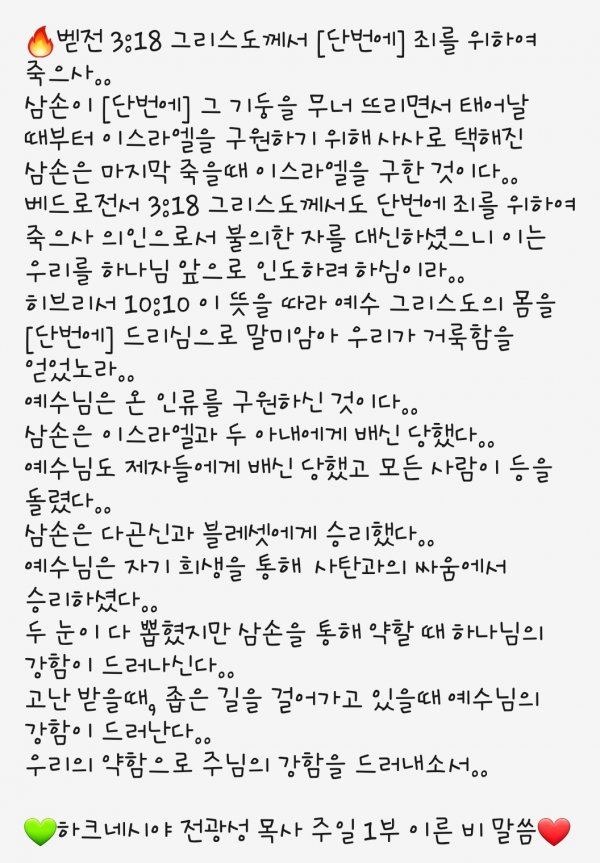 🔥벧전 3:18 그리스도께서 [단번에] 죄를 위하여
죽으사..
삼손이 [단번에] 그 기둥을 무너 뜨리면서 태어날
때부터 이스라엘을 구원하기 위해 사사로 택해진
삼손은 마지막 죽을때 이스라엘을 구한 것이다..
베드로전서 3:18 그리스도께서도 단번에 죄를 위하여
죽으사 의인으로서 불의한 자를 대신하셨으니 이는
우리를 하나님 앞으로 인도하려 하심이라..
히브리서 10:10 이 뜻을 따라 예수 그리스도의 몸을
[단번에] 드리심으로 말미암아 우리가 거룩함을
얻었노라..
예수님은 온 인류를 구원하신 것이다..
삼손은 이스라엘과 두 아내에게 배신 당했다..
예수님도 제자들에게 배신 당했고 모든 사람이 등을
돌렸다..
삼손은 다곤신과 블레셋에게 승리했다..
예수님은 자기 희생을 통해 사탄과의 싸움에서
승리하셨다..
두 눈이 다 뽑혔지만 삼손을 통해 약할 때 하나님의
강함이 드러나신다..
고난 받을때, 좁은 길을 걸어가고 있을때 예수님의
강함이 드러난다..
우리의 약함으로 주님의 강함을 드러내소서..
💚하크네시야 전광성 목사 주일 1부 이른 비 말씀❤️